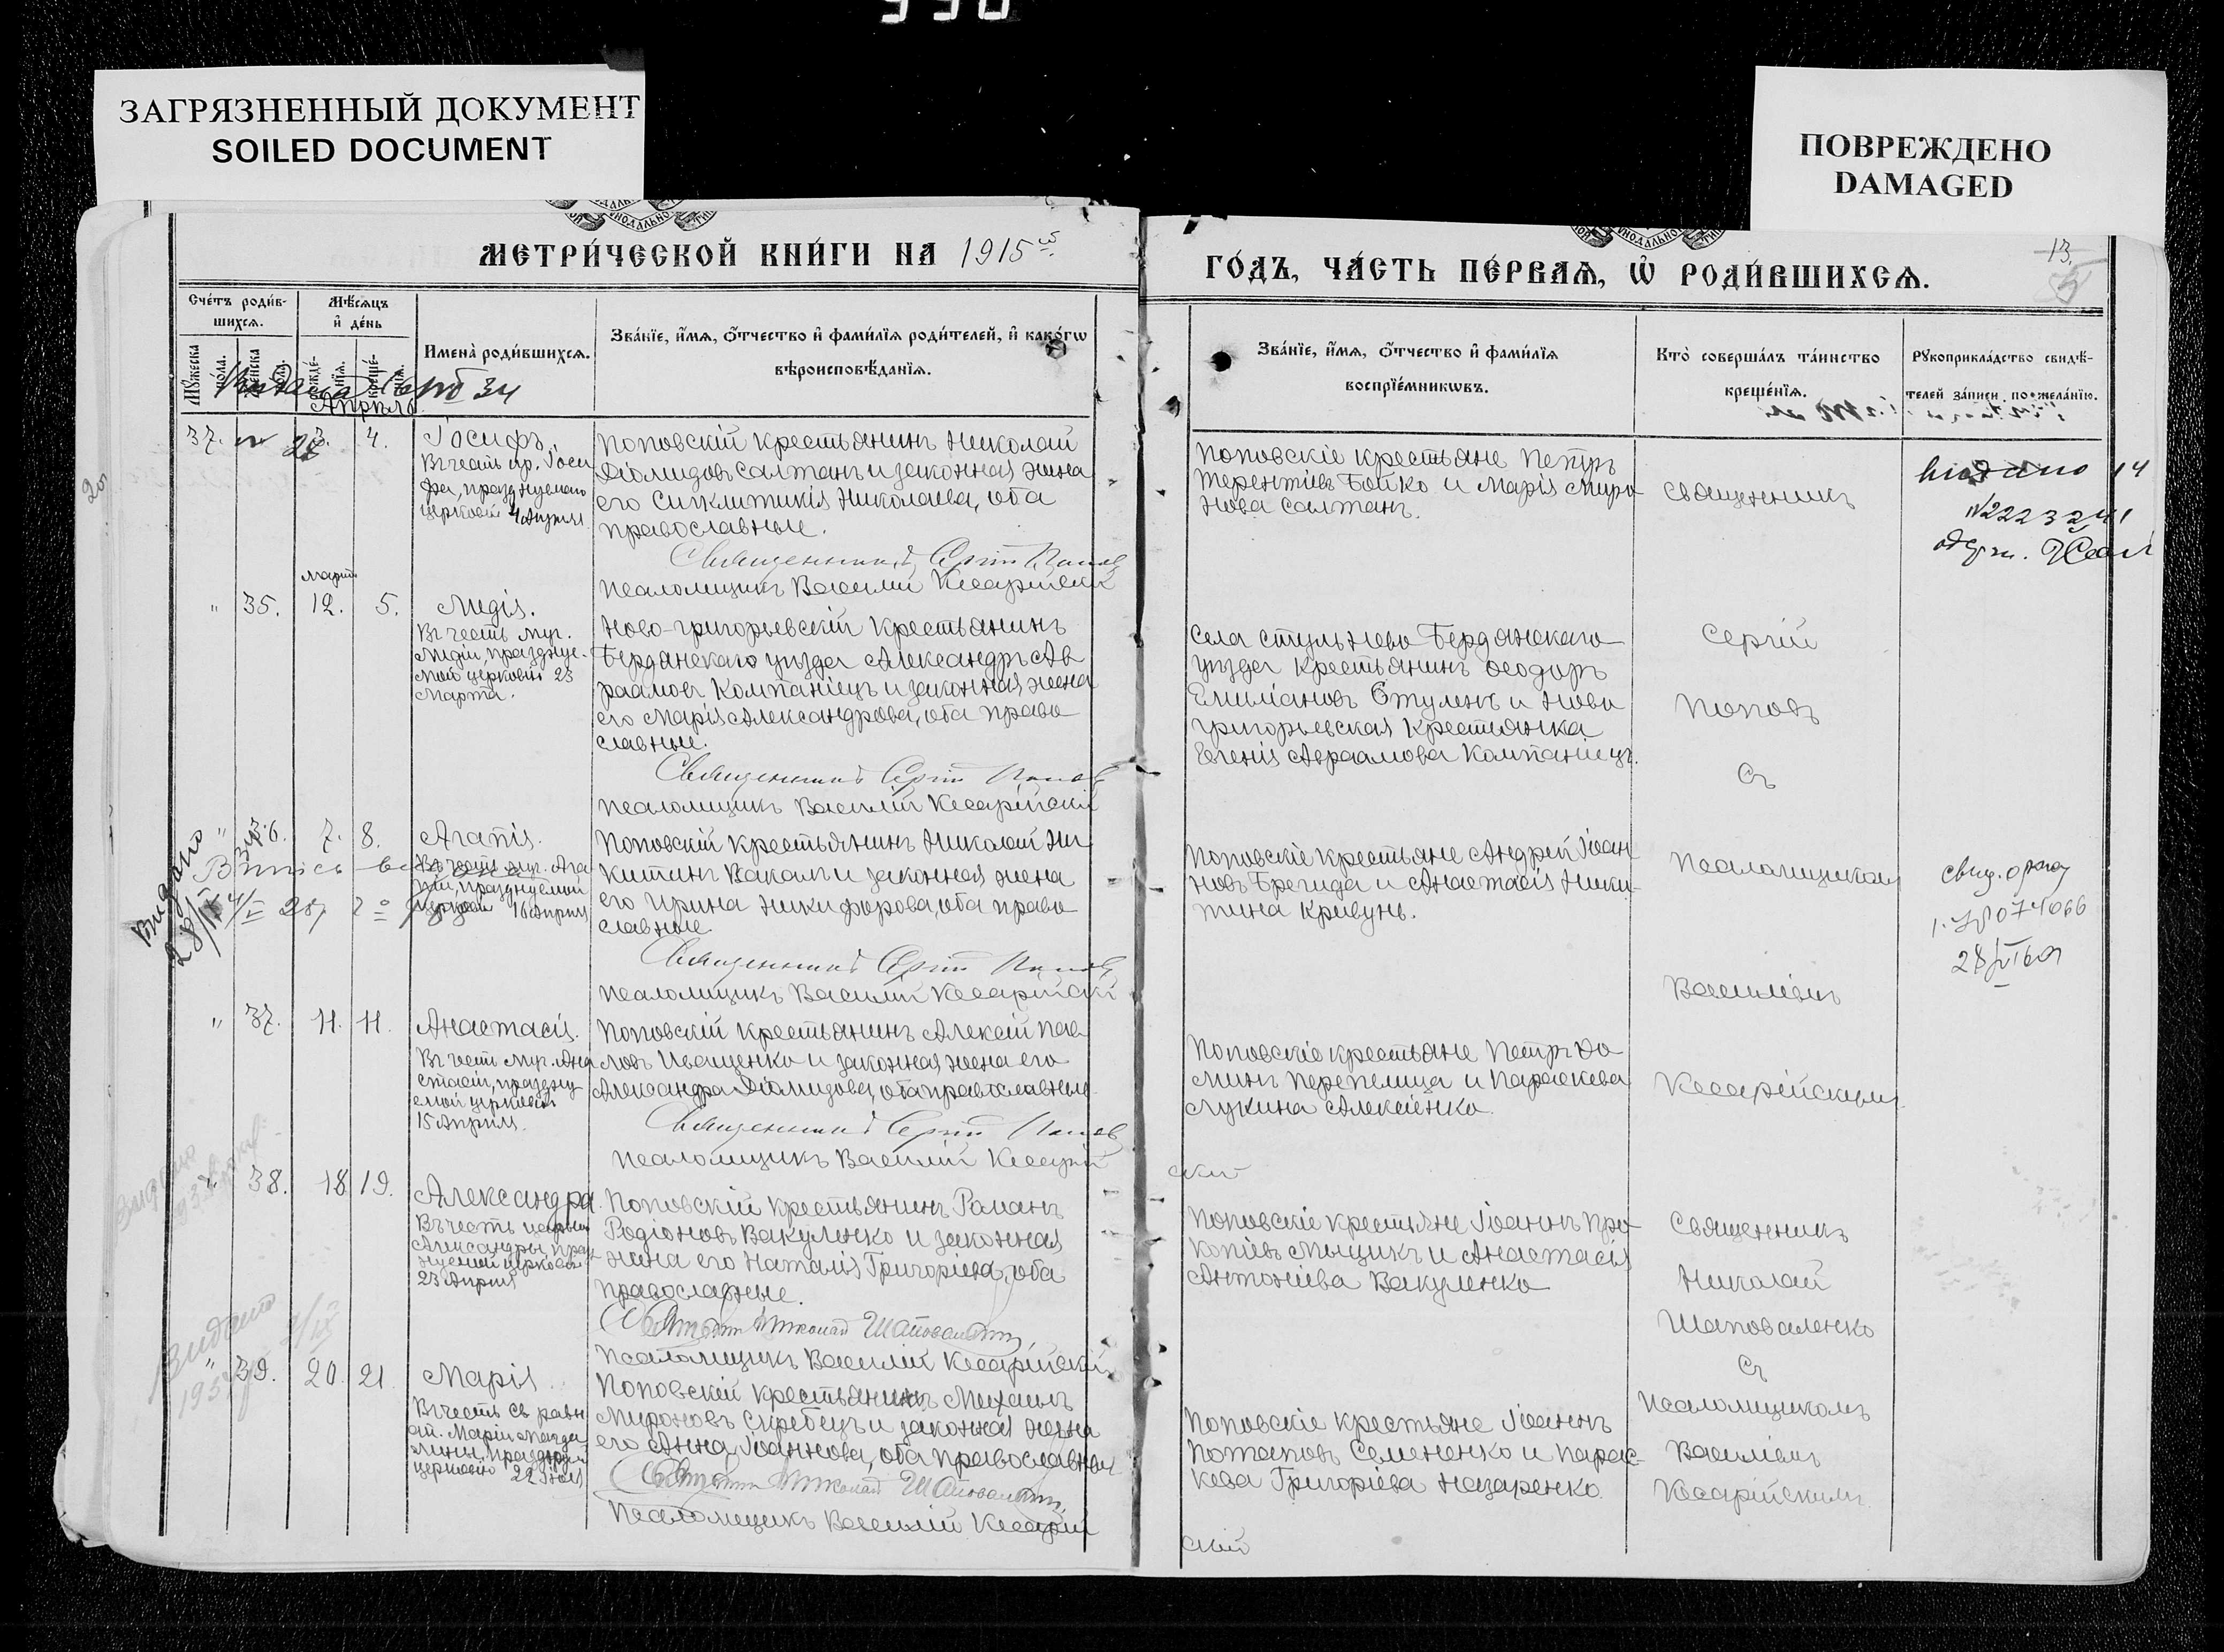 ЗАГРЯЗНЕННЫЙ ДОКУМЕНТ
SOILED DOCUMENT
ПОВРЕЖДЕНО
DAMAGED
МЕТРИ́ЧЕСКОЙ КНИ́ГИ НА 1915
ГО́ДЪ, ЧА́СТЬ ПЕ́РВАѦ, Ѡ҆ РОДИ́ВШИХСѦ.
13
Сче́тъ роди́в-
шихсѧ.
Мѣ́сѧцъ
и҆ де́нь
Имена̀ роди́вшихсѧ.
Зва́нїе, и҆́мѧ, ѻ҆́тчество и҆ фами́лїѧ роди́телей, и҆ како́гѡ
вѣроисповѣ́данїѧ.
Зва́нїе, и҆́мѧ, ѻ҆́тчество и҆ фами́лїѧ
воспрїе́мникѡвъ.
Кто̀ соверша́лъ та́инство
креще́нїѧ.
Рꙋкоприкла́дство свидѣ́-
телей за́писи по жела́нїю.
Апрѣль
37. 4.
Іосифъ.
Въ честь пр. Іоси
фа, празднуемаго
церковію 4 Апрѣля
Поповскій крестьянинъ Николай
Діомидовъ Салтанъ и законная жена
его Сигклитикія Николаева, оба
православные.
Священникъ Сергій Поповъ
Псаломщикъ Василій Кесарійскій
Поповскіе крестьяне Петръ
Терентіевъ Бойко и Марія Миро
нова Салтанъ.
Священникъ
видано 14
Мартъ
" 35. 12. 5.
Лидія.
Въ честь муч.
Лидіи, праздуе-
мой церковію 23
Марта.
Ново-григорьевскій крестьянинъ
Бердянскаго уѣзда Александръ Ав
раамовъ Компаніецъ и законная жена
его Марія Александрова, оба право
славные.
Священникъ Сергій Поповъ
Псаломщикъ Василій Кесарійскій
Села Стульнева Бердянскаго
уѣзда крестьянинъ Ѳеодоръ
Емиліановъ Стулень и Ново
григорьевская крестьянка
Евгенія Авраамова Компаніецъ.
Сергій
Поповъ
Съ
" 36. 7. 8.
Агапія.
Въ честь муч. Ага
піи, празднуемой
церковію 16 Апрѣля
Поповскій крестьянинъ Николай Ни
китинъ Вакалъ и законная жена
его Ирина Никифорова, оба право
славные.
Священникъ Сергій Поповъ
Псаломщикъ Василій Кесарійскій
Поповскіе крестьяне Андрей Іоан
новъ Брегида и Анастасія Ники-
тина Кривунь.
Псаломщикомъ
Василіемъ
074066
Видано
" 37. 11. 11.
Анастасія.
Въ честь муч. Ана
стасіи, праздну
емой церковію
15 Апрѣля.
Поповскій крестьянинъ Алексій Пав
ловъ Иващенко и законная жена его
Александра Діомидова, оба православные.
Священникъ Сергій Поповъ
Псаломщикъ Василій Кесарій
ский
Поповскіе крестьяне Петръ До
минъ Перепелица и Параскева
Лукина Алексѣенко.
Кесарійскимъ
Видано
" 38. 18 19.
Александра.
Въ честь царицы
Александры, празд
нуемой церковію
23 Апрѣля
Поповскій крестьянинъ Романъ
Родіоновъ Вакуленко и законная
жена его Наталія Григоріева, оба
православные.
Священникъ Николай Шаповаленко
Псаломщикъ Василій Кесарійскій
Поповскіе крестьяне Іоаннъ Про
копіевъ Мыцикъ и Анастасія
Антоніева Вакуленко
Священникъ
Николай
Шаповаленко
Съ
Псаломщикомъ
Василіемъ
Кесарійскимъ
Видано
" 39. 20. 21.
Марія.
Въ честь св. равн
ап. Маріи Магда
лины, празднуем
церковію 22 Іюля
Поповскій крестьянинъ Михаилъ
Мироновъ Скребецъ и законная жена
его Анна Іоаннова, оба православные
Священникъ Николай Шаповаленко
Псаломщикъ Василій Кесарій
скій
Поповскіе крестьяне Іоаннъ
Потаповъ Семененко и Парас-
кева Григоріева Назаренко.